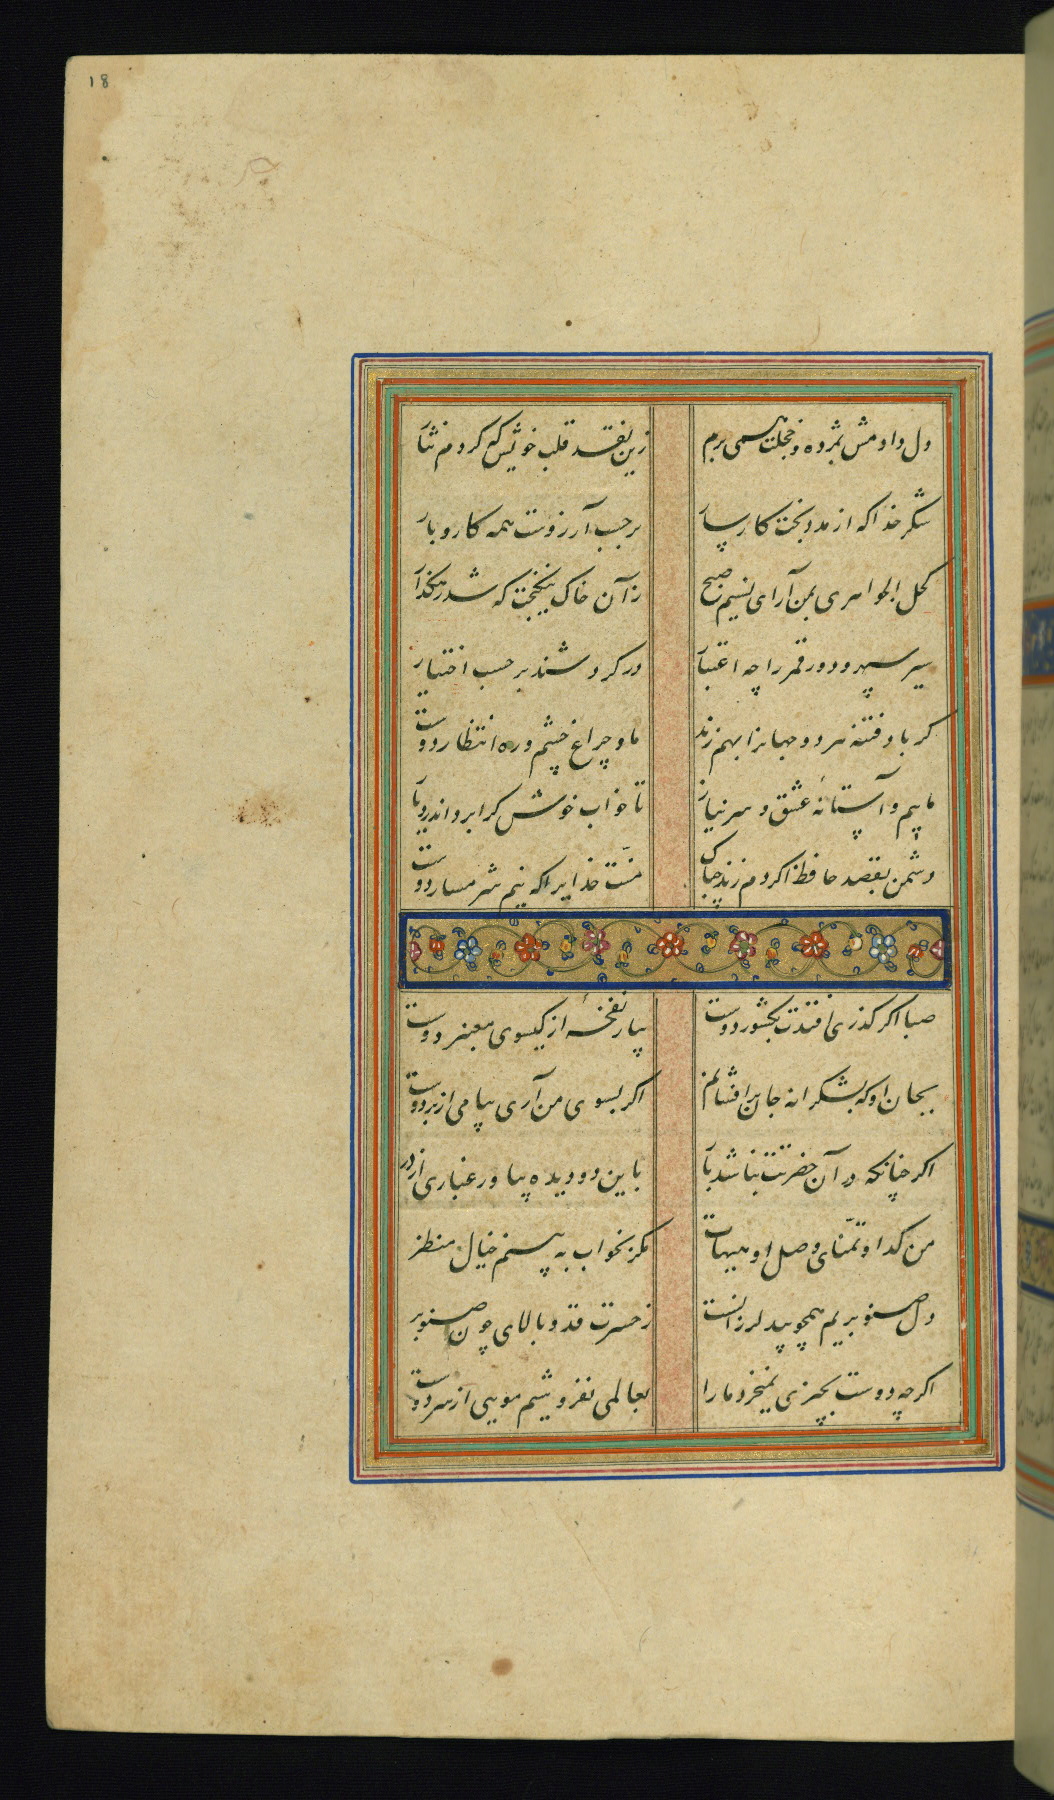 18
دل دادمش بمژده و خجلت همی برم
زین نقد قلب خویش که کردم نثار
شکر خدا که از مدد بخت کارساز
بر حسب آرزوست همه کار و بار
کحل الجواهری بمن آر ای نسیم صبح
زان خاک نیکبخت که شد رهگذار
سیر سپهر و دور قمر را چه اعتبار
در گردشند بر حسب اختیار
گر باد فتنه هر دو جهانرا بهم زند
ما و چراغ چشم و ره انتظار دوست
ماییم و آستانه عشق و سر نیاز
تا خواب خوش کرا برد اندر
دشمن بقصد حافظ اگر دم زند چه باک
منّت خدایرا که نیم شرمسار دوست
صبا اگر گذری افتدت بکشور دوست
بیار نفحهٔ از گیسوی معنبر دوست
بجان او که بشکرانه جان برافشانم
اگر بسوی من آری پیامی از بر دوست
اگر چنانکه در آن حضرتت نباشد بار
باین دو دیده بیاور غباری از در
من گدا و تمنّای وصل او هیهات
مگر بخواب به بینم خیال منظر
دل صنوبریم همچو بید لرزانست
ز حسرت قد و بالای چون صنوبر
اگر چه دوست بچیزی نمیخرد ما را
بعالمی نفروشیم مویی از سر دوست